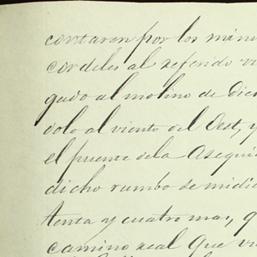 contaren por los mine
cordeles al referido vi
guió al molino de Die
dolo al viento del Oest, y
el puente dela Asequi
dicho rumbo de midie
tenta y cuatro mas, q
camino real que vi